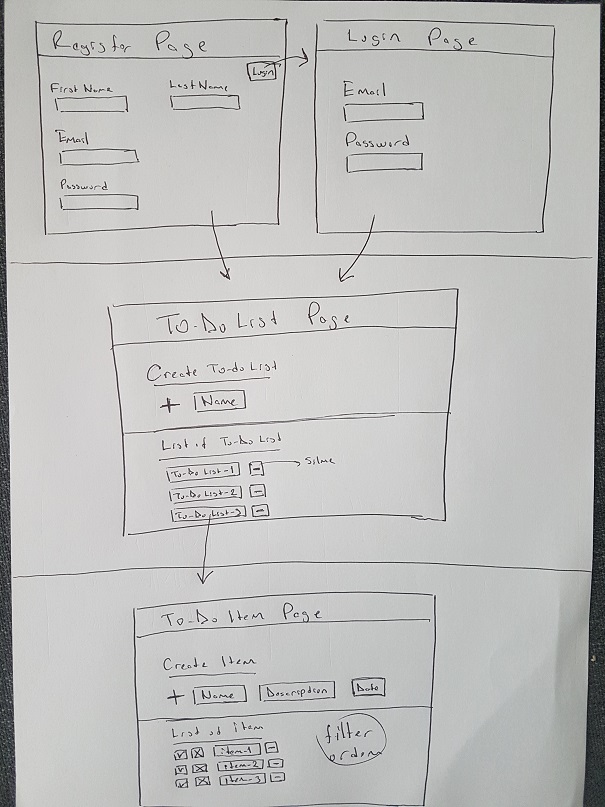 Register Page
Login
First Name
Last Name
Email
Password
Login Page
Email
Password
To-Do List Page
Create To-do List
+ Name
List of To-Do List
To-Do List-1 - Silme
To-Do List-2 -
To-Do List-3 -
To-Do Item Page
Create Item
+ Name Description Date
List of item
item-1 -
item-2 -
item-3 -
filter